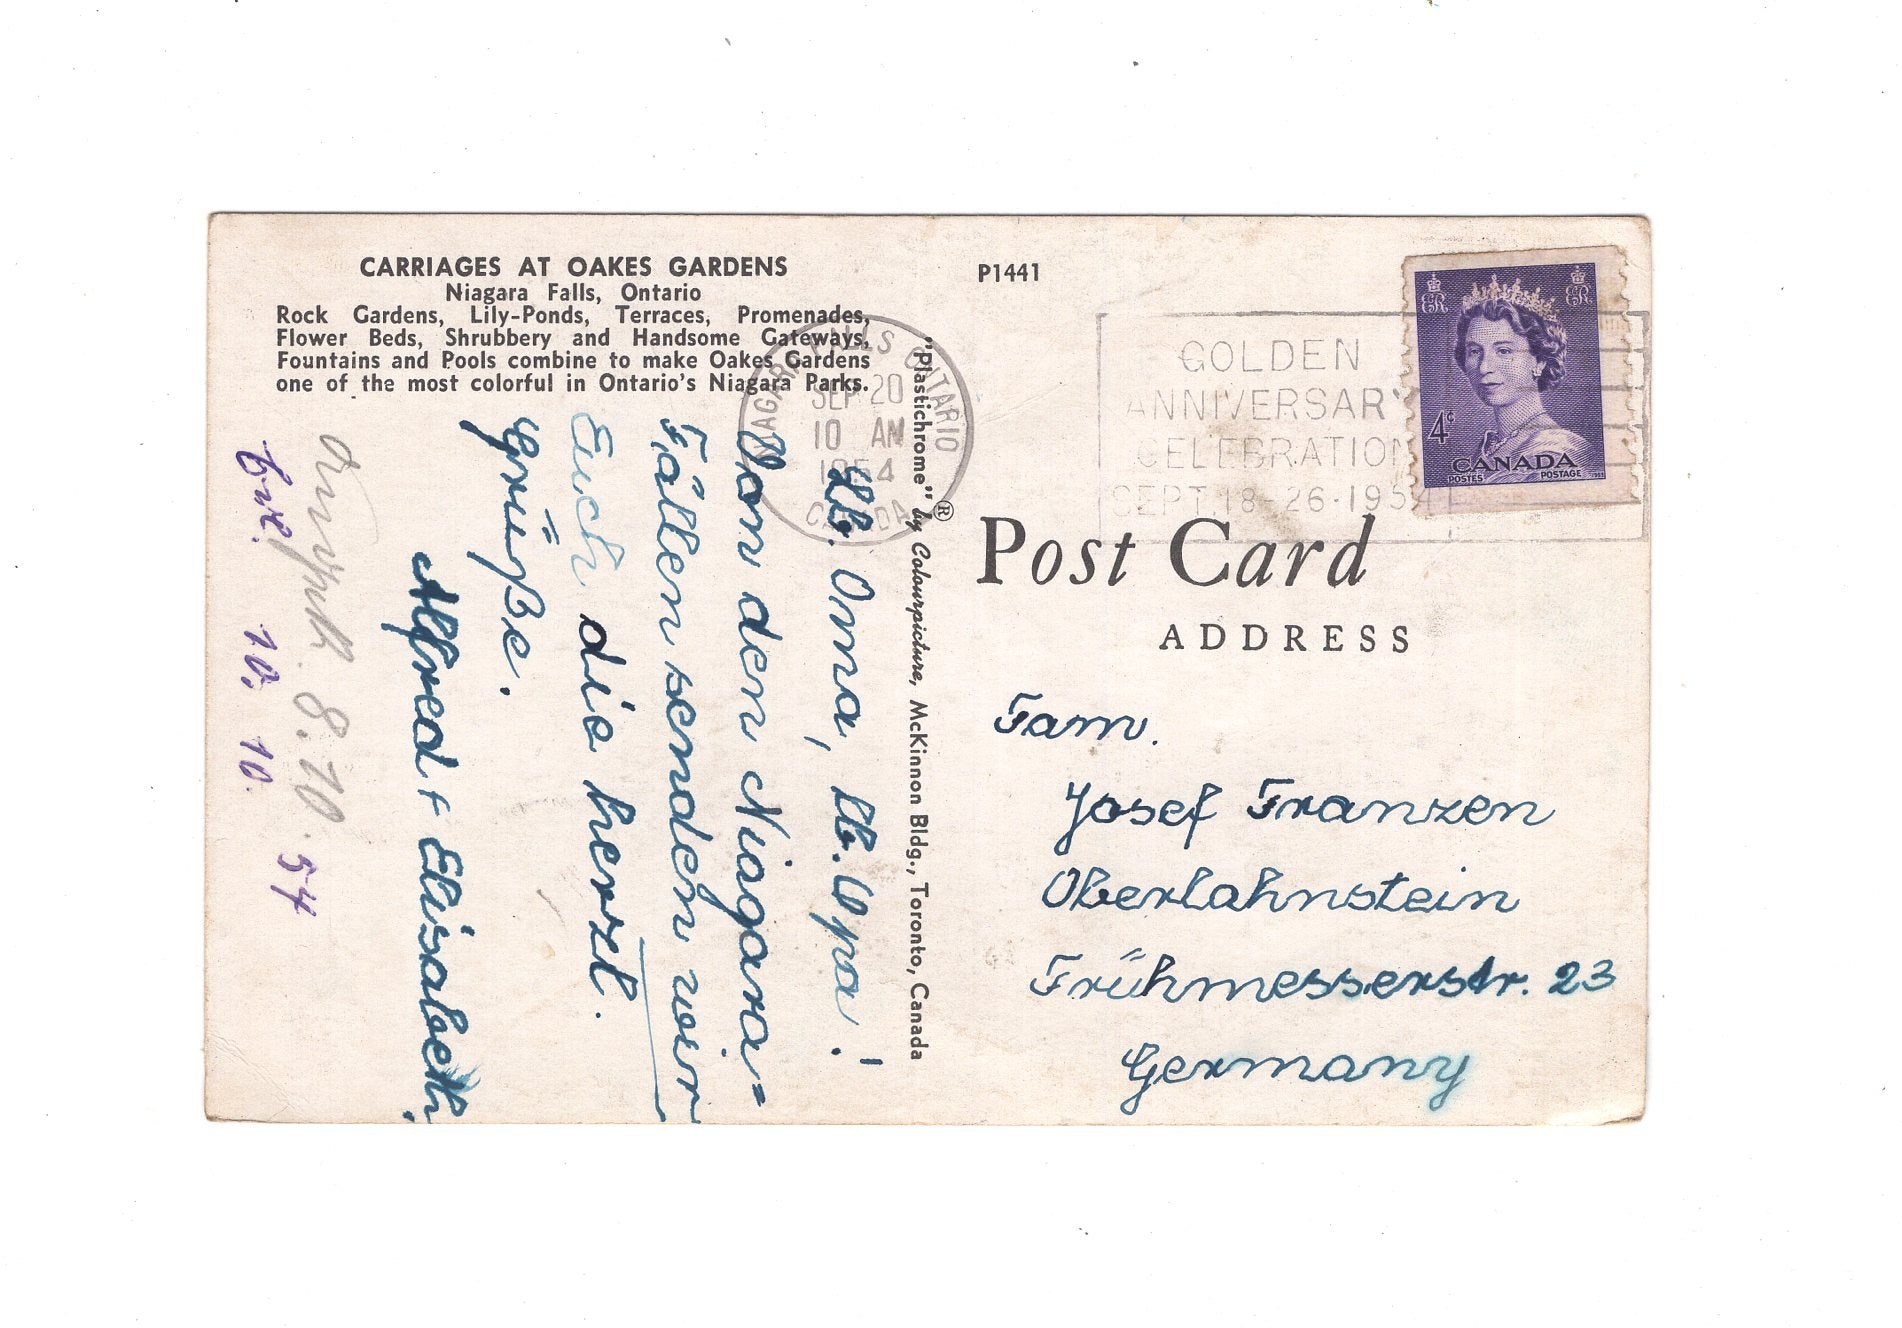 CARRIAGES AT OAKES GARDENS
Niagara Falls, Ontario
Rock Gardens, Lily-Ponds, Terraces, Promenades,
Flower Beds, Shrubbery and Handsome Gateways,
Fountains and Pools combine to make Oakes Gardens
one of the most colorful in Ontario's Niagara Parks.
Lb. Oma, lb. Opa!
Von den Niagara=
Fällen senden wir
Euch die herzl.
Grüße.
Alfred + Elisabeth.
8.10.
10. 10. 54
"Plastichrome" ® by Colourpicture, McKinnon Bldg., Toronto, Canada
NIAGARA FALLS ONTARIO
SEP 20
10 AM
1954
CANADA
P1441
GOLDEN
ANNIVERSARY
CELEBRATION
SEPT. 18-26-1954
ER ER
4¢
CANADA
POSTES POSTAGE
Post Card
ADDRESS
Fam.
Josef Franzen
Oberlahnstein
Frühmesserstr. 23
Germany